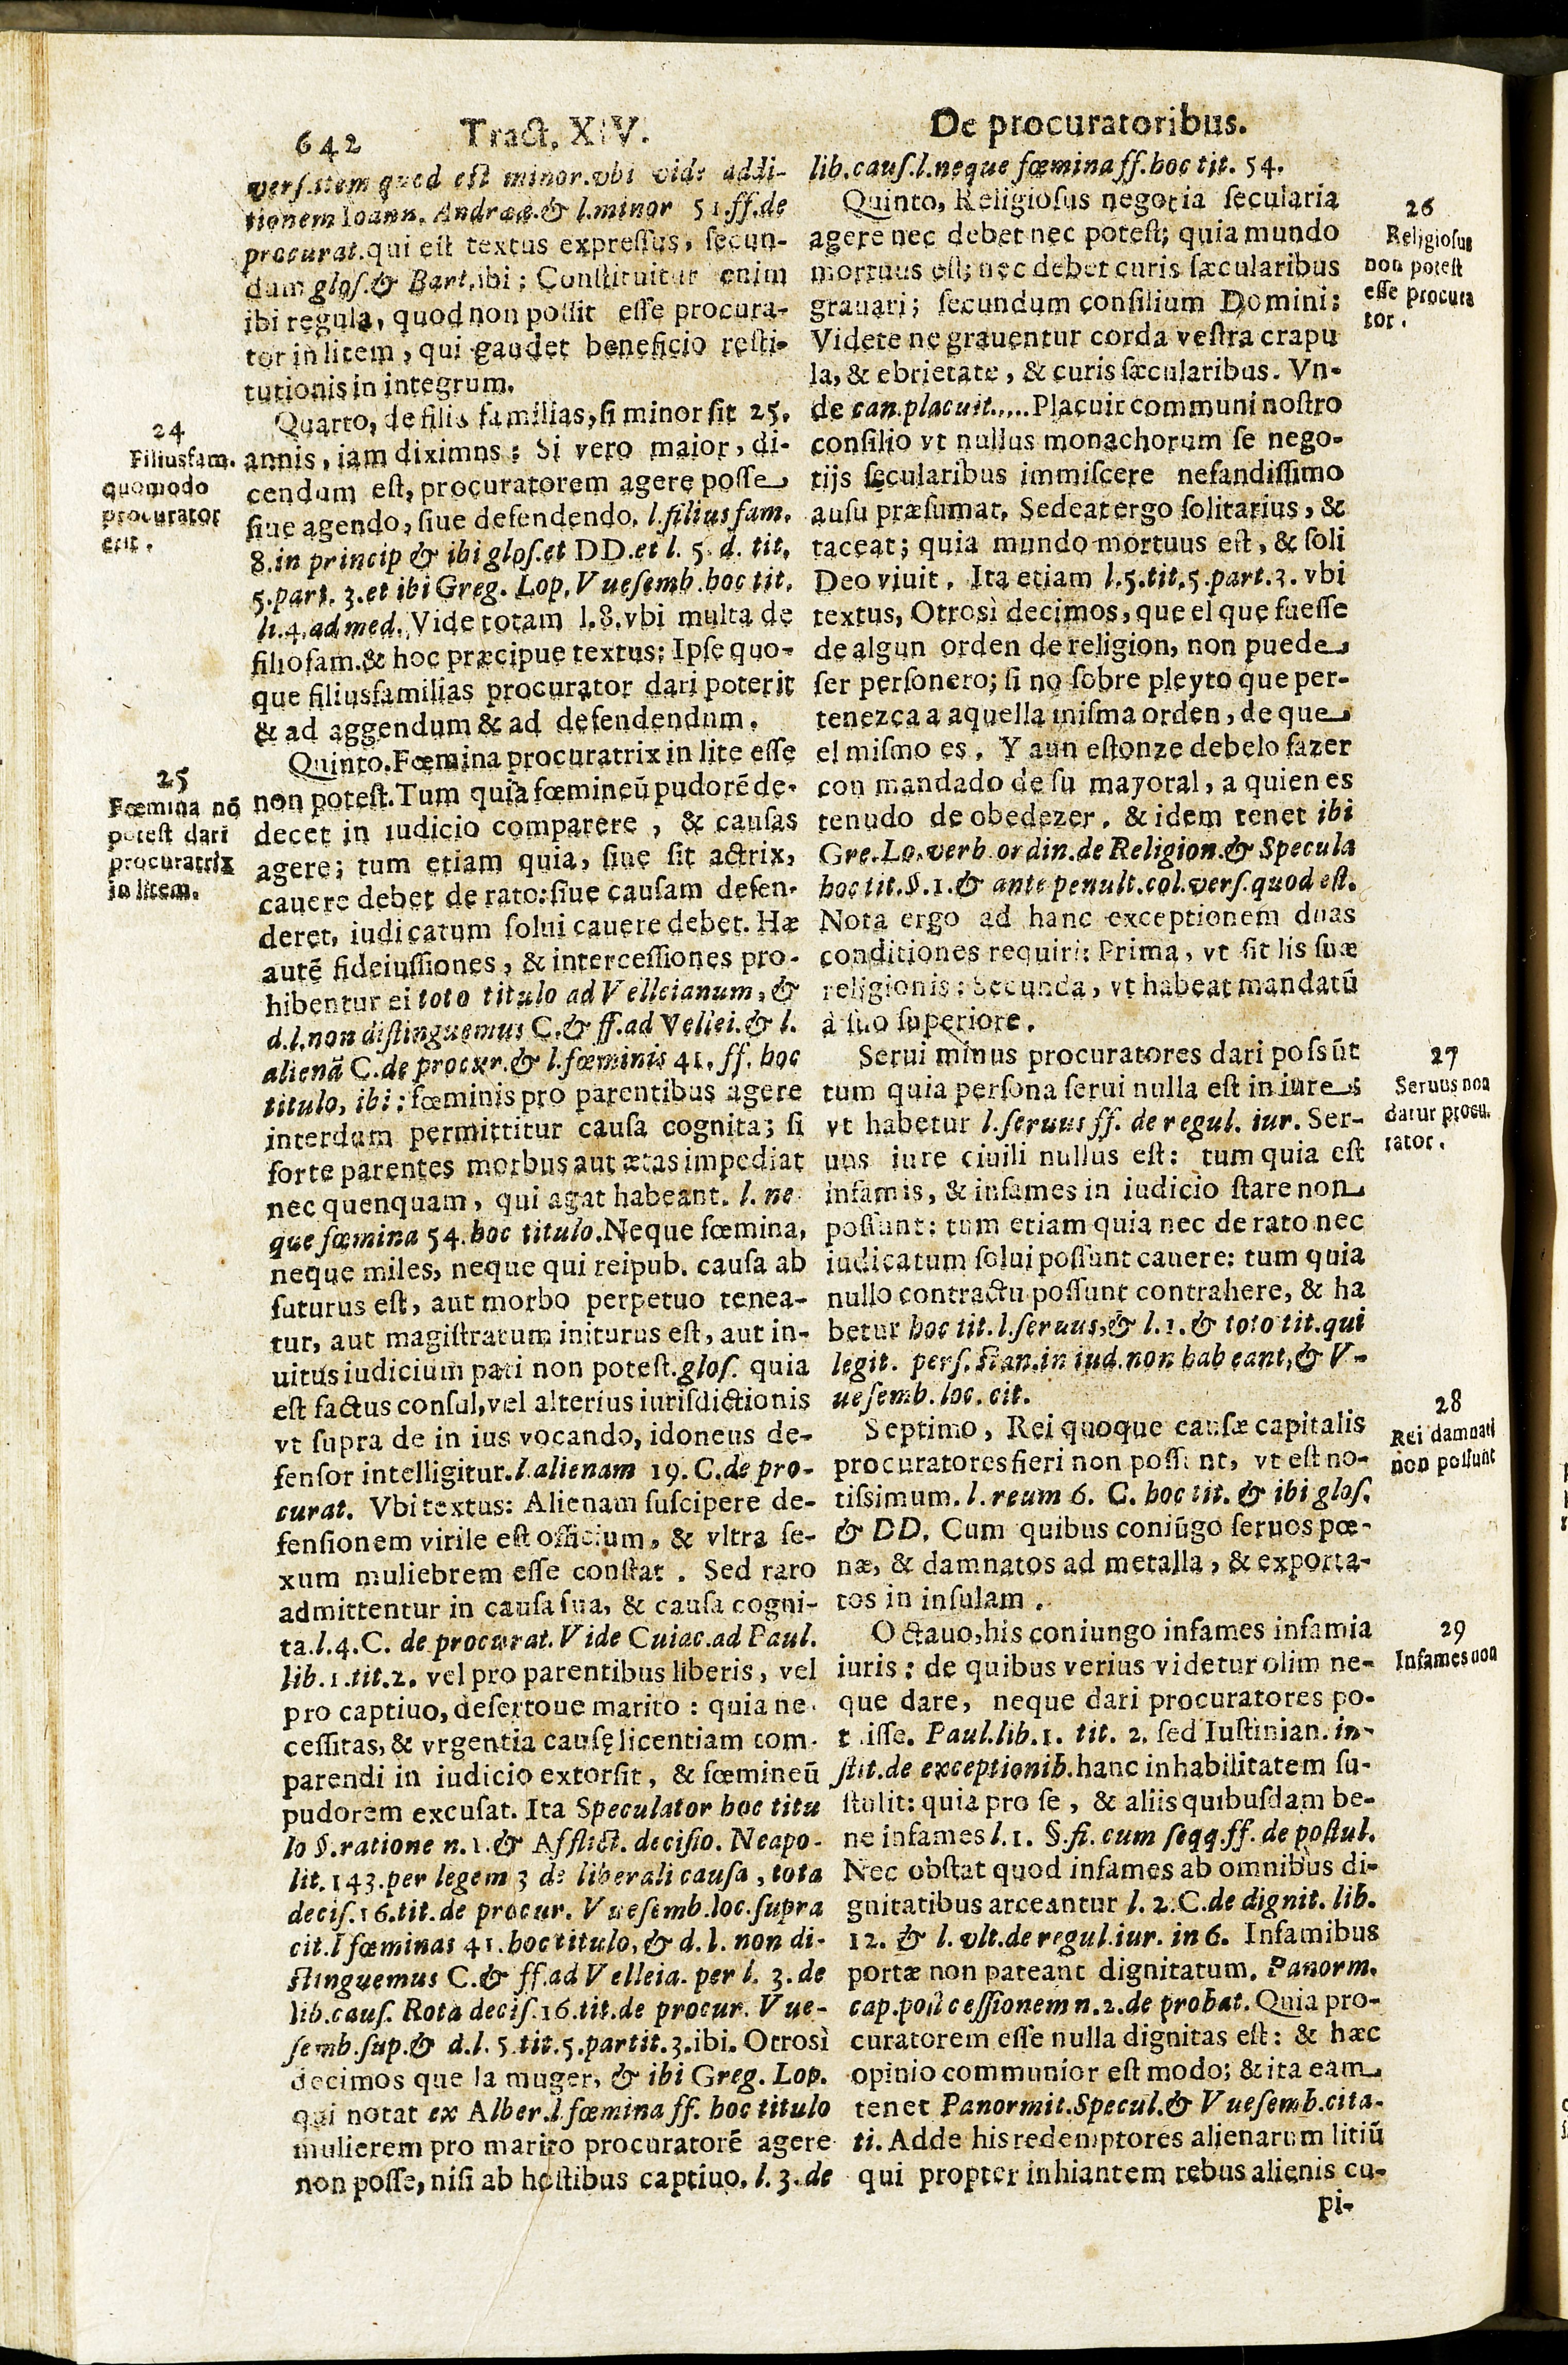 642 Tract. XIV. De procuratoribus.
vers. item quod est minor. vbi vide addi-
tionem Ioann. Andreæ. & l. minor 51. ff. de
procurat. qui est textus expressus, secun-
dum glos. & Bart. ibi; Constituitur enim
ibi regula, quod non possit esse procura-
tor in litem, qui gaudet beneficio resti-
tutionis in integrum.
24
Filiusfam.
quomodo
procurator
erit.
Quarto, de filio familias, si minor sit 25.
annis, iam diximns: Si vero maior, di-
cendum est, procuratorem agere posse
siue agendo, siue defendendo. l. filius fam.
8. in princip & ibi glos. et DD. et l. 5. d. tit.
5. part. 3. et ibi Greg. Lop. Vuesemb. hoc tit.
li. 4. ad med. Vide totam l. 8. vbi multa de
filiofam. & hoc præcipue textus: Ipse quo-
que filiusfamilias procurator dari poterit
& ad aggendum & ad defendendum.
25
Fœmina nō
potest dari
procuratrix
in litem.
Quinto. Fœmina procuratrix in lite esse
non potest. Tum quia fœmineū pudorē de-
decet in iudicio comparere, & causas
agere; tum etiam quia, siue sit actrix,
cauere debet de rato: siue causam defen-
deret, iudicatum solui cauere debet. Hæ
autē fideiussiones, & intercessiones pro-
hibentur ei toto titulo ad Velleianum, &
d. l. non distinguemus C. & ff. ad Vellei. & l.
alienā C. de procur. & l. fœminis 41. ff. hoc
titulo, ibi: fœminis pro parentibus agere
interdum permittitur causa cognita; si
forte parentes morbus aut ætas impediat
nec quenquam, qui agat habeant. l. ne
que fœmina 54. hoc titulo. Neque fœmina,
neque miles, neque qui reipub. causa ab
futurus est, aut morbo perpetuo tenea-
tur, aut magistratum initurus est, aut in-
uitus iudicium pati non potest. glos. quia
est factus consul, vel alterius iurisdictionis
vt supra de in ius vocando, idoneus de-
fensor intelligitur. l. alienam 19. C. de pro-
curat. Vbi textus: Alienam suscipere de-
fensionem virile est officium, & vltra se-
xum muliebrem esse constat. Sed raro
admittentur in causa sua, & causa cogni-
ta. l. 4. C. de procurat. Vide Cuiac. ad Paul.
lib. 1. tit. 2. vel pro parentibus liberis, vel
pro captiuo, desertoue marito: quia ne-
cessitas, & vrgentia causę licentiam com-
parendi in iudicio extorsit, & fœmineū
pudorem excusat. Ita Speculator hoc titu
lo §. ratione n. 1. & Afflict. decisio. Neapo-
lit. 143. per legem 3 de liberali causa, tota
decis. 16. tit. de procur. Vuesemb. loc. supra
cit. l fœminas 41. hoc titulo, & d. l. non di-
stinguemus C. & ff. ad Velleia. per l. 3. de
lib. caus. Rota decis. 16. tit. de procur. Vue-
semb. sup. & d. l. 5. tit. 5. partit. 3. ibi. Otrosì
decimos que la muger, & ibi Greg. Lop.
qui notat ex Alber. l. fœmina ff. hoc titulo
mulierem pro marito procuratorē agere
non posse, nisi ab hostibus captiuo. l. 3. de
lib. caus. l. neque fœmina ff. hoc tit. 54.
26
Religiosus
non potest
esse procura
tor.
Quinto, Religiosus negotia secularia
agere nec debet nec potest; quia mundo
mortuus est; nec debet curis sæcularibus
grauari; secundum consilium Domini:
Videte ne grauentur corda vestra crapu
la, & ebrietate, & curis sæcularibus. Vn-
de can. placuit..... Placuit communi nostro
consilio vt nullus monachorum se nego-
tijs secularibus immiscere nefandissimo
ausu præsumat. Sedeat ergo solitarius, &
taceat; quia mundo mortuus est, & soli
Deo viuit. Ita etiam l. 5. tit. 5. part. 3. vbi
textus, Otrosì decimos, que el que fuesse
de algun orden de religion, non puede
ser personero; si no sobre pleyto que per-
tenezca a aquella misma orden, de que
el mismo es. Y aun estonze debelo fazer
con mandado de su mayoral, a quien es
tenudo de obedezer. & idem tenet ibi
Gre. Lo. verb. ordin. de Religion. & Specula
hoc tit. §. 1. & ante penult. col. vers. quod est.
Nota ergo ad hanc exceptionem duas
conditiones requiri: Prima, vt sit lis suæ
religionis: Secunda, vt habeat mandatū
a suo superiore.
27
Seruus non
datur procu.
rator.
Serui minus procuratores dari possūt
tum quia persona serui nulla est in iure
vt habetur l. seruus ff. de regul. iur. Ser-
uus iure ciuili nullus est: tum quia est
infamis, & infames in iudicio stare non
possunt: tum etiam quia nec de rato nec
iudicatum solui possunt cauere: tum quia
nullo contractu possunt contrahere, & ha
betur hoc tit. l. seruus, & l. 1. & toto tit. qui
legit. pers. stan. in iud. non habeant, & V-
uesemb. loc. cit.
28
Rei damnati
non possunt
Septimo, Rei quoque causæ capitalis
procuratores fieri non possunt, vt est no-
tissimum. l. reum 6. C. hoc tit. & ibi glos.
& DD. Cum quibus coniūgo seruos pœ-
næ, & damnatos ad metalla, & exporta-
tos in insulam.
29
Infames non
Octauo, his coniungo infames infamia
iuris: de quibus verius videtur olim ne-
que dare, neque dari procuratores po-
t isse. Paul. lib. 1. tit. 2. sed Iustinian. in-
stit. de exceptionib. hanc inhabilitatem su-
stulit: quia pro se, & aliis quibusdam be-
ne infames l. 1. §. fi. cum seqq. ff. de postul.
Nec obstat quod infames ab omnibus di-
gnitatibus arceantur l. 2. C. de dignit. lib.
12. & l. vlt. de regul. iur. in 6. Infamibus
portæ non pateant dignitatum. Panorm.
cap. post cessionem n. 2. de probat. Quia pro-
curatorem esse nulla dignitas est: & hæc
opinio communior est modo; & ita eam
tenet Panormit. Specul. & Vuesemb. cita-
ti. Adde his redemptores alienarum litiū
qui propter inhiantem rebus alienis cu-
pi-